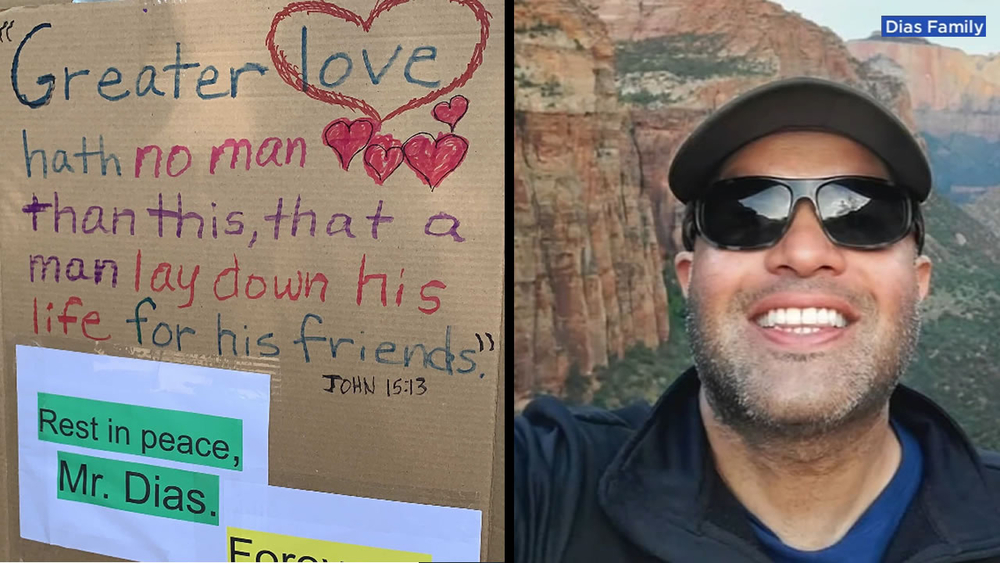 "Greater love
hath no man
than this, that a
man lay down his
life for his friends."
JOHN 15:13
Rest in peace,
Mr. Dias.
Dias Family